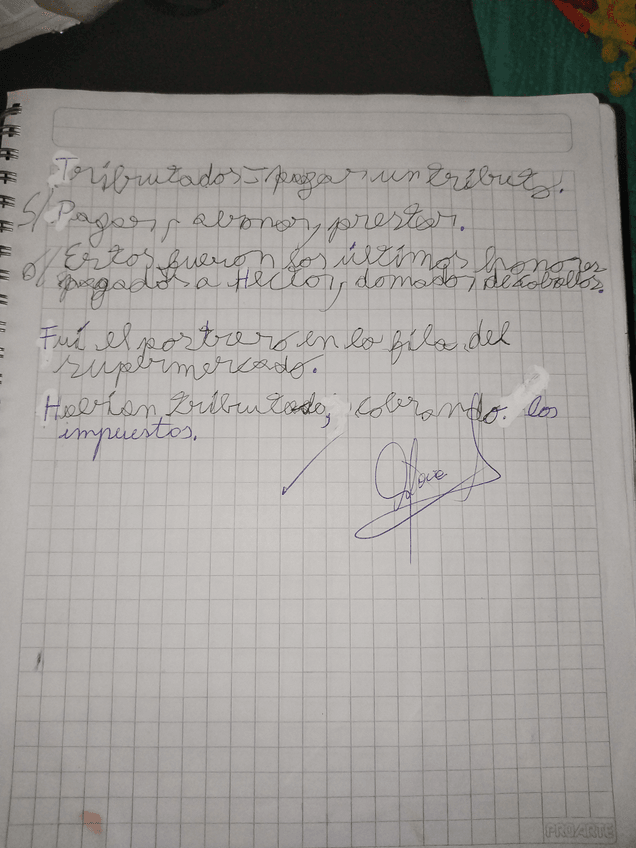 Tributados = pagar un tributo.
S/ Pagar, abonar, prestar.
o/ Estos fueron los últimos honores
pagados a Hector, domador de caballos.
Fuí el postrero en la fila del
supermercado.
Habían tributado, cobrando. los
impuestos.
PROARTE